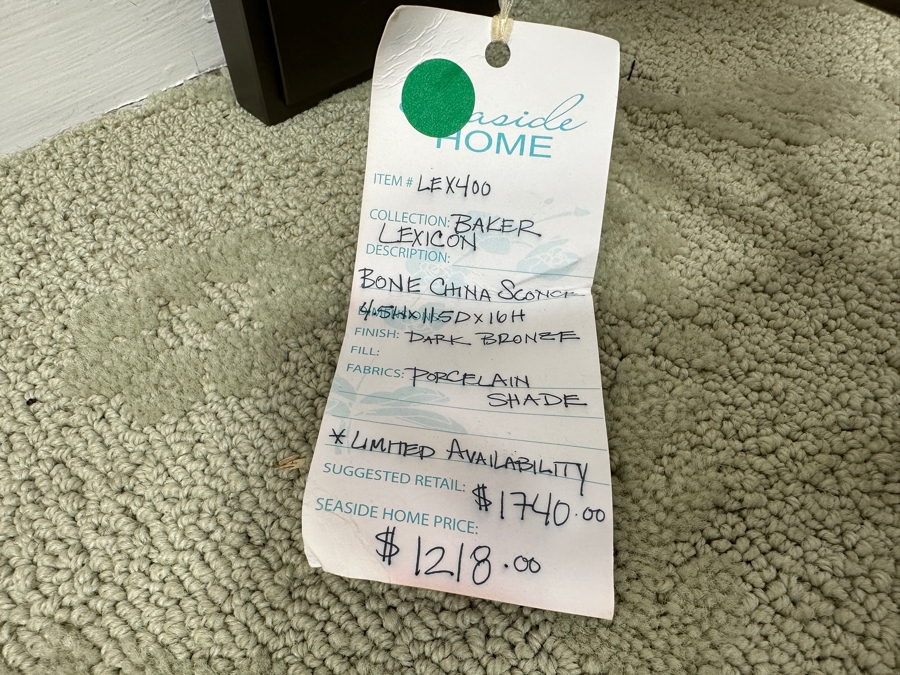 easide
HOME
ITEM # LEX400
COLLECTION: BAKER
LEXICON
DESCRIPTION:
BONE CHINA SCONCE
4.5H x 11.5D x 16H
FINISH: DARK BRONZE
FILL:
FABRICS: PORCELAIN
SHADE
* LIMITED AVAILABILITY
SUGGESTED RETAIL: $1740.00
SEASIDE HOME PRICE:
$1218.00